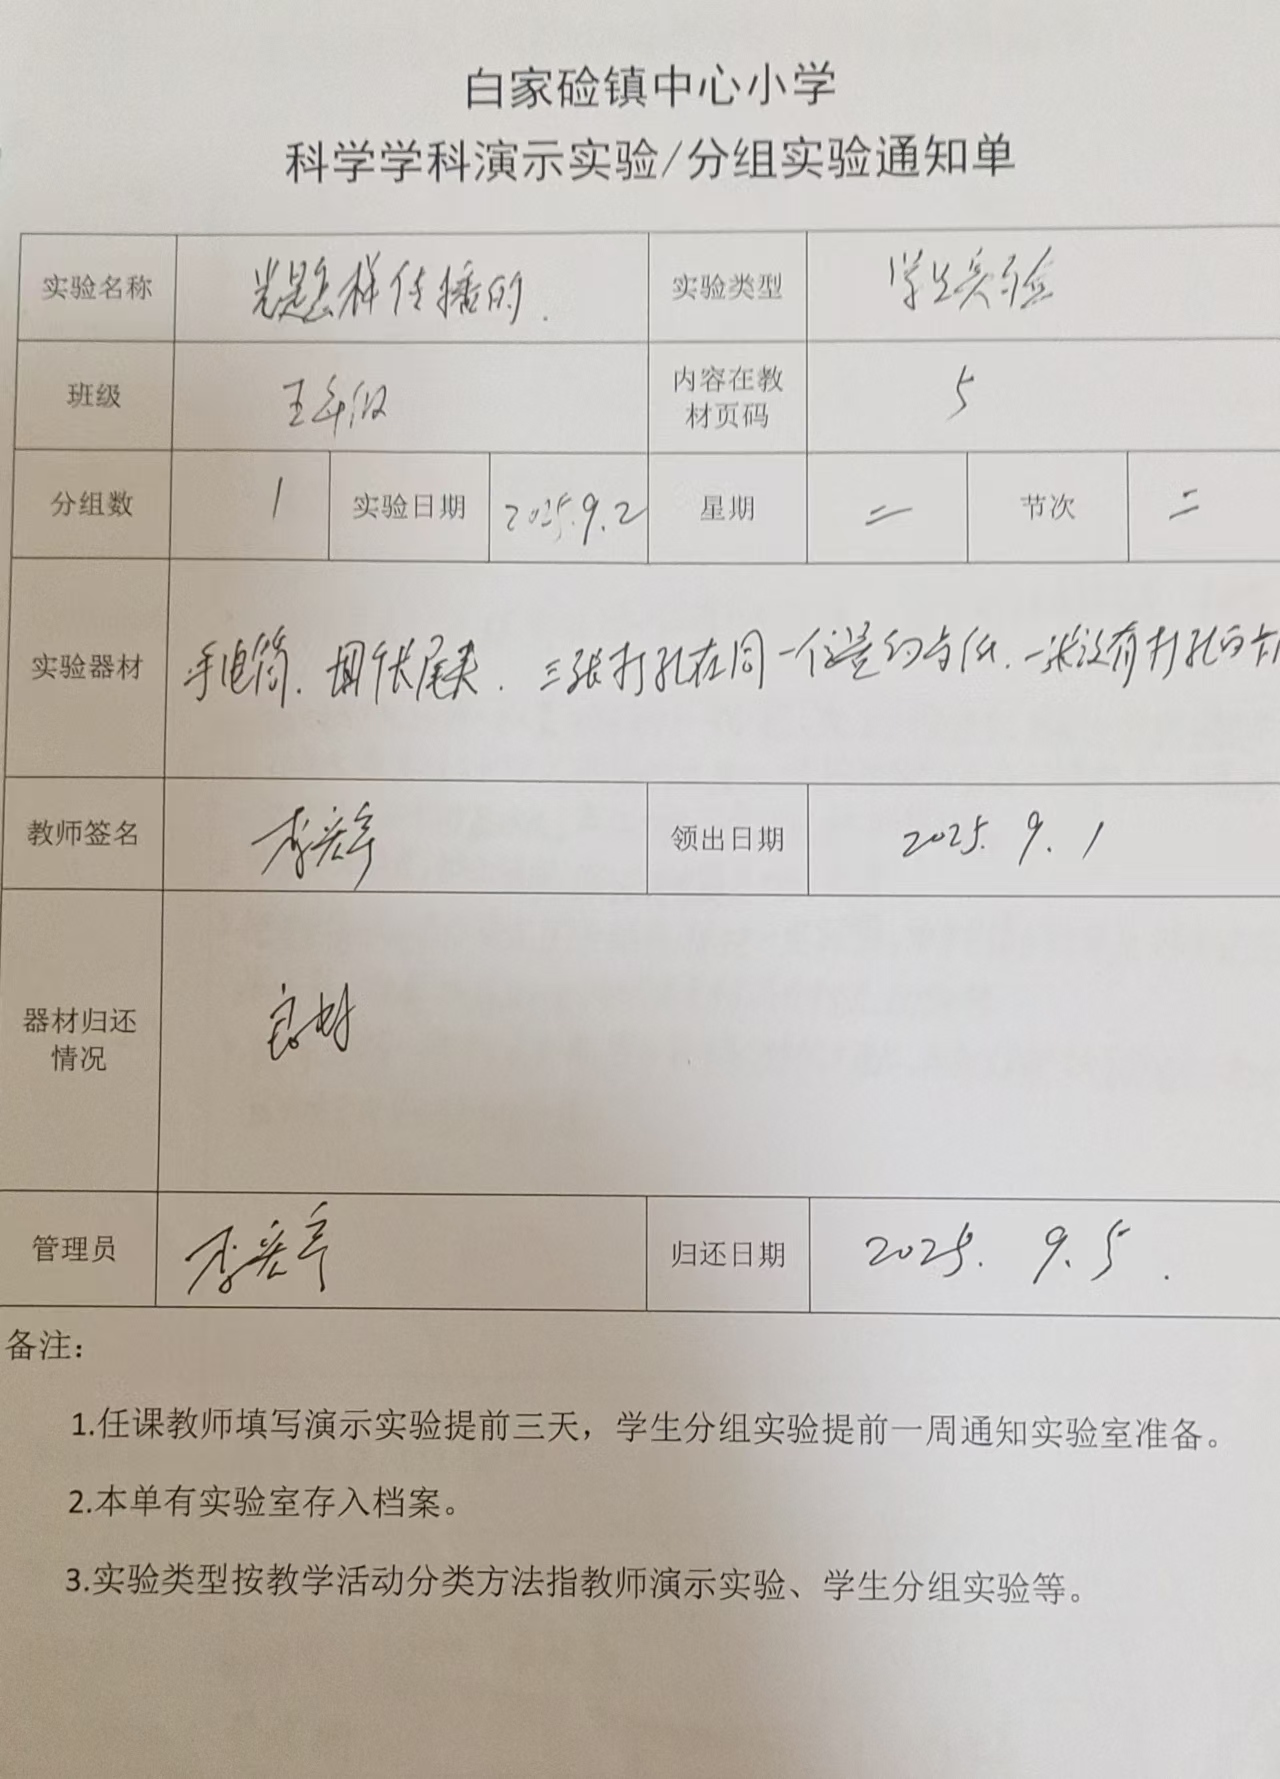 白家硷镇中心小学
科学学科演示实验/分组实验通知单
实验名称 光是怎样传播的. 实验类型 学生实验
班级 五年级 内容在教材页码 5
分组数 1 实验日期 2025.9.2 星期 二 节次 二
实验器材 手电筒、四个长尾夹、三张打孔在同一位置的卡纸、一张没有打孔的卡
教师签名 李 领出日期 2025.9.1
器材归还情况 良好
管理员 李 归还日期 2025.9.5.
备注：
1.任课教师填写演示实验提前三天，学生分组实验提前一周通知实验室准备。
2.本单有实验室存入档案。
3.实验类型按教学活动分类方法指教师演示实验、学生分组实验等。